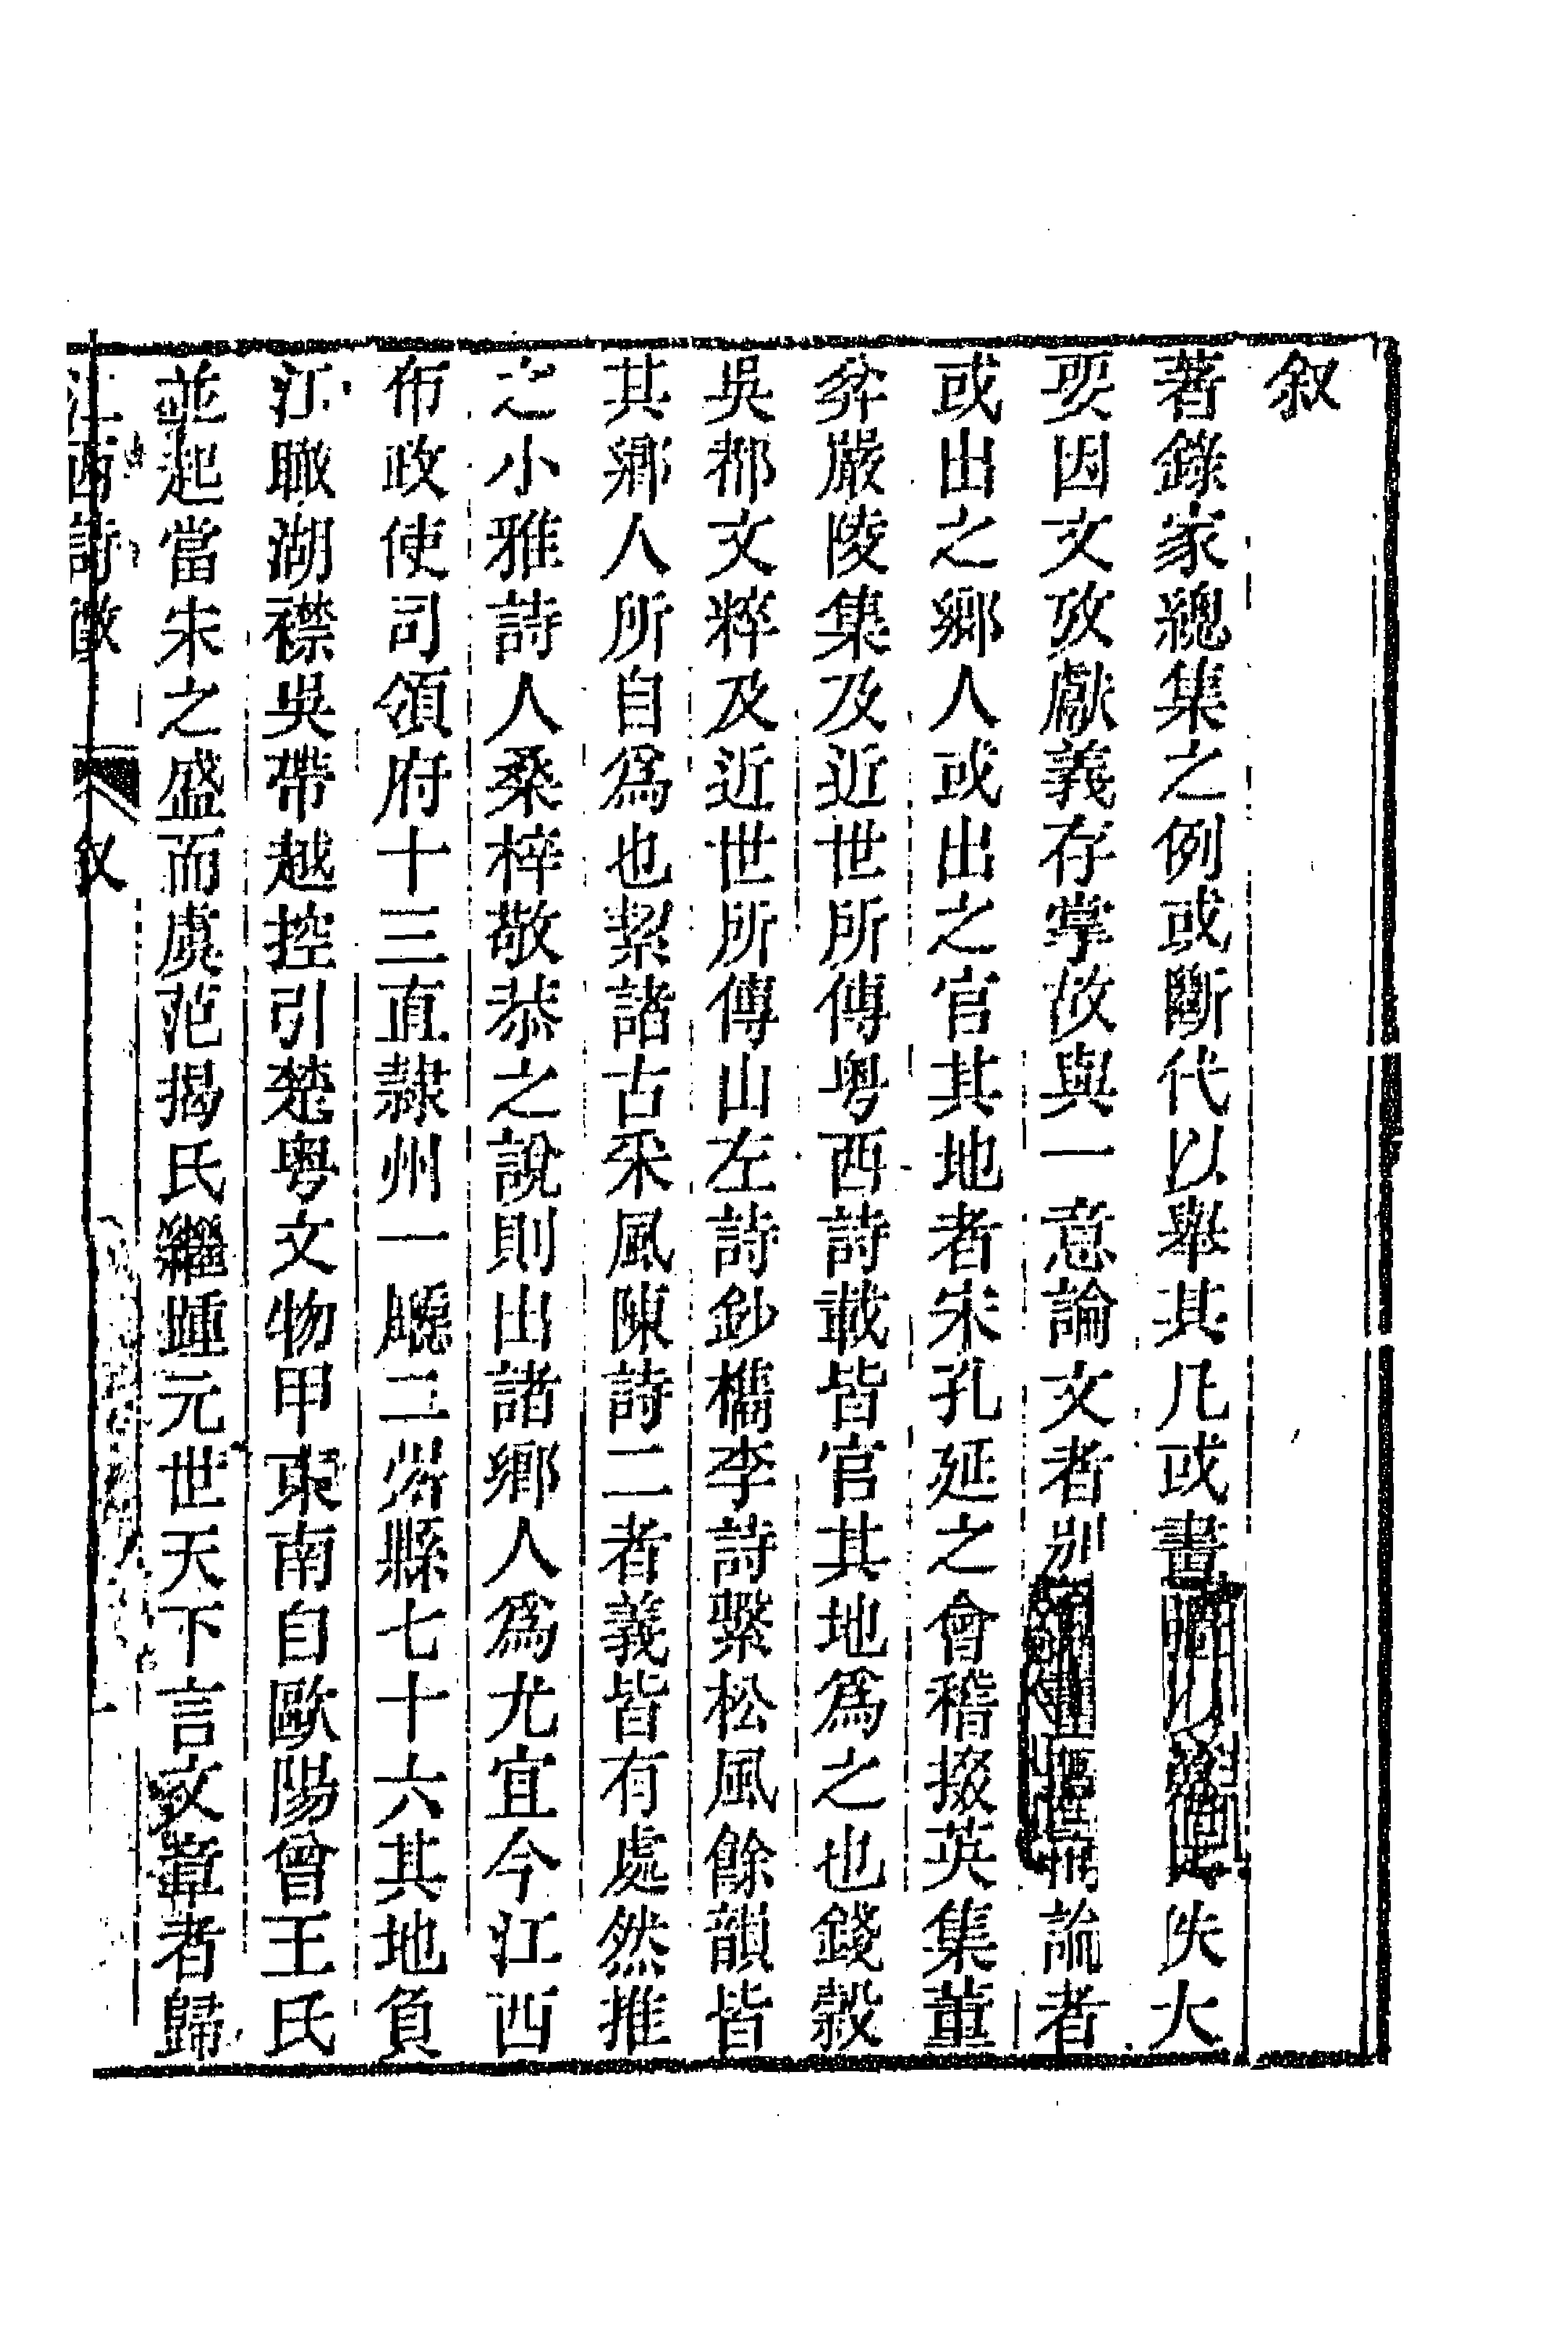 叙
著錄家總集之例或斷代以舉其凡或畫佚大
要因文攷獻義存掌故與一意論文者別論者
或出之鄉人或出之官其地者宋孔延之會稽掇英集董
弅嚴陵集及近世所傳粤西詩載皆官其地爲之也錢榖
吳郡文粹及近世所傳山左詩鈔檇李詩繫松風餘韻皆
其鄉人所自爲也絜諸古采風陳詩二者義皆有處然推
之小雅詩人桑梓敬恭之說則出諸鄉人爲尤宜今江西
布政使司領府十三直隸州一廳二州縣七十六其地負
江瞰湖襟吳帶越控引楚粤文物甲東南自歐陽曾王氏
並起當宋之盛而虞范揭氏繼踵元世天下言文章者歸
江西詩徵
叙